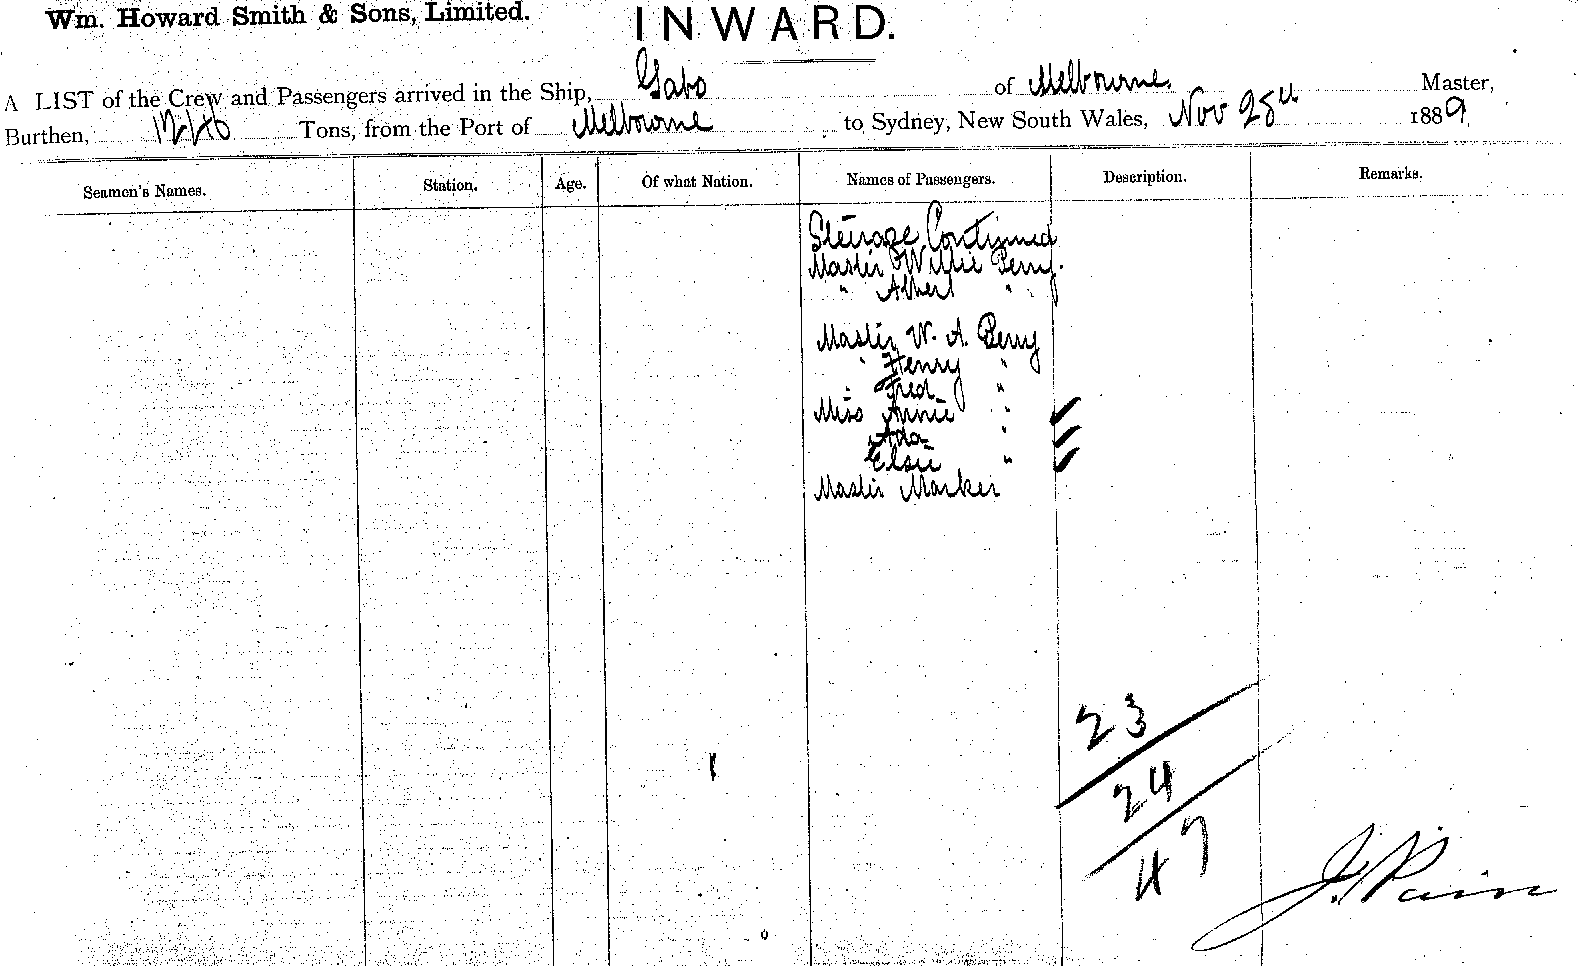 Wm. Howard Smith & Sons, Limited.
INWARD.
A LIST of the Crew and Passengers arrived in the Ship, Gabo of Melbourne. Master,
Burthen, Tons, from the Port of Melbourne to Sydney, New South Wales, Nov 28th 1889
Seamen's Names. Station. Age. Of what Nation. Names of Passengers. Description. Remarks.
Steerage Continued
Master Willie Perry.
" Albert "
Master W. A. Perry
" Henry "
" Fred "
Miss Annie "
Ada "
Elsie "
Master Marker
23
24
47
J. Pain